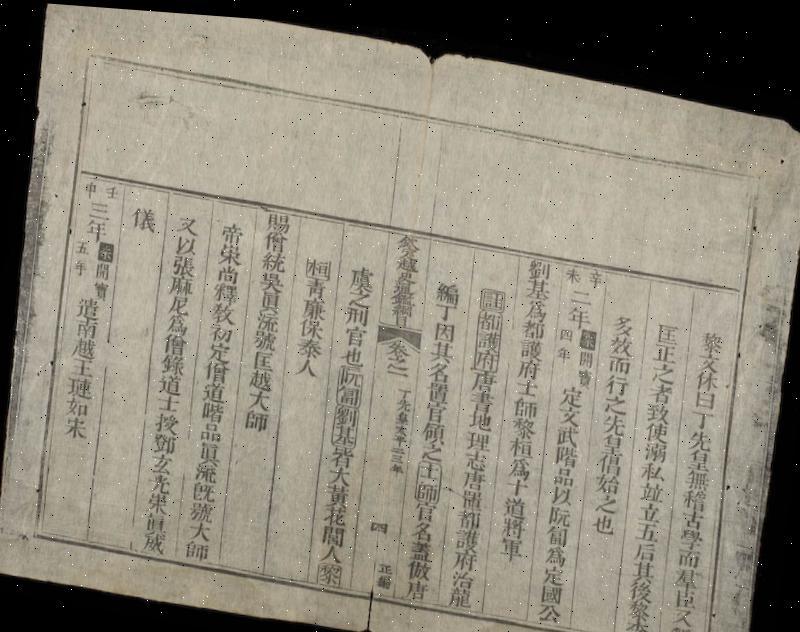 黎文休曰丁先皇無稽古學而羣臣又
匡正之者致使溺私竝立五后其後黎李
多效而行之先皇倡始之也
辛未二年宋開寶四年定文武階品以阮匐爲定國公
劉基爲都護府士師黎桓爲十道將軍
註都護府唐書地理志唐置都護府治龍
編丁因其名置官領之士師官名蓋倣唐
欽定越史通鑑綱目 卷之一 丁先皇太平二三年 四 正編
虞之刑官也阮匐劉基皆大黃花閭人黎
桓青廉保泰人
賜僧統吳眞流號匡越大師
帝崇尚釋教初定僧道階品眞流旣號大師
又以張麻尼爲僧錄道士授鄧玄光崇眞威
儀
壬申三年宋開寶五年遣南越王璉如宋